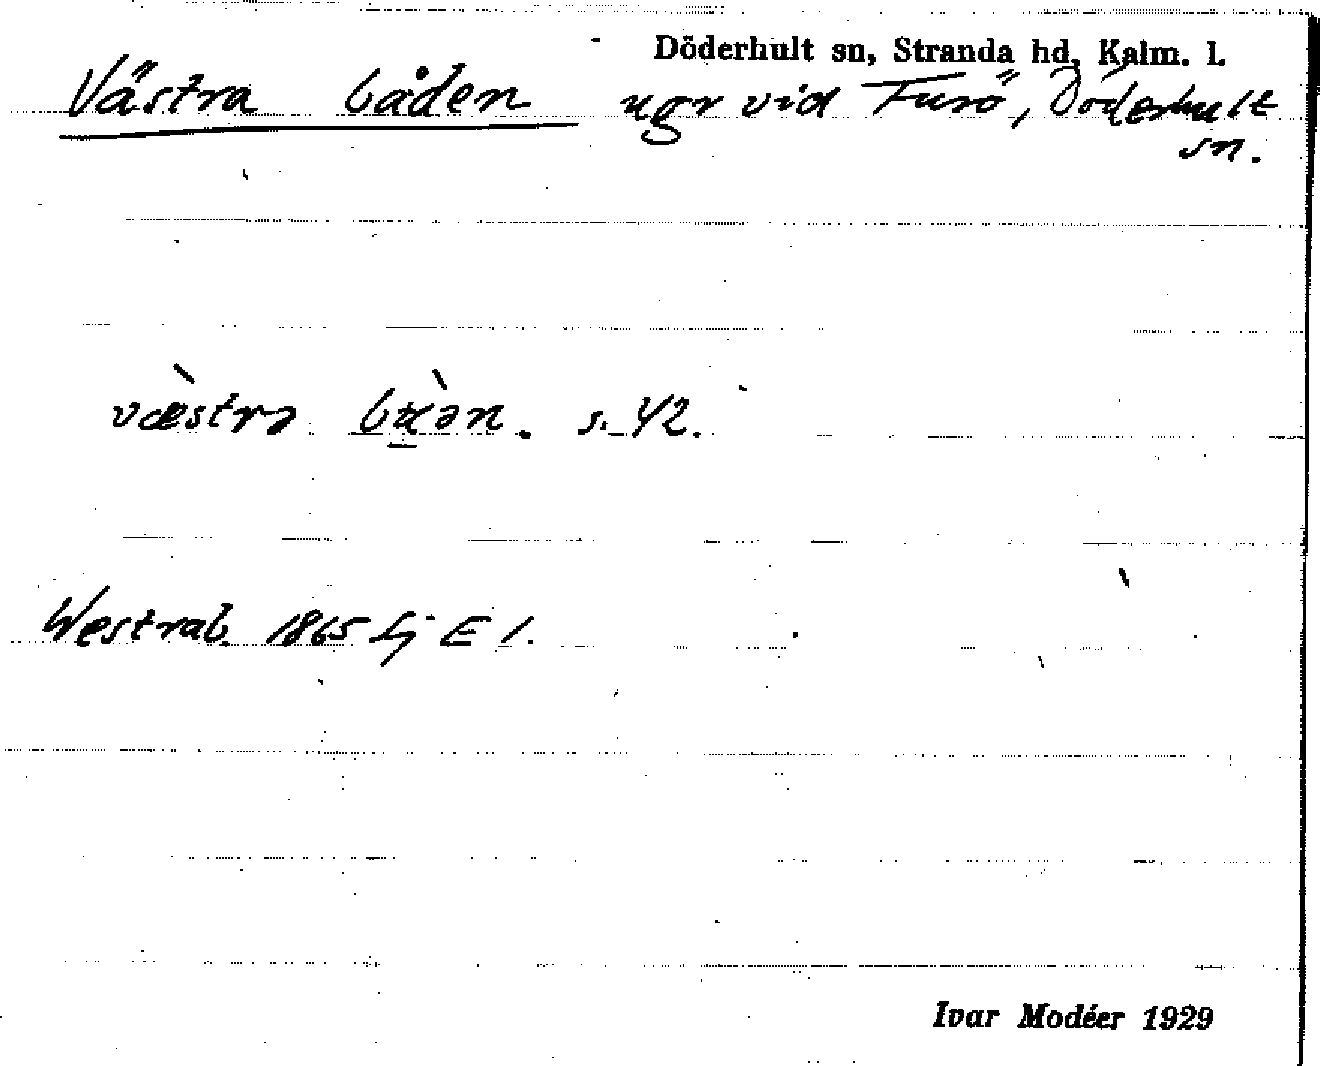 Döderhult sn, Stranda hd, Kalm. l.
Västra båden ugr vid Furö, Döderhult
sn.
væ̀strə bɷ̀ən. s. 42.
Westrab. 1865 Lj E 1.
Ivar Modéer 1929